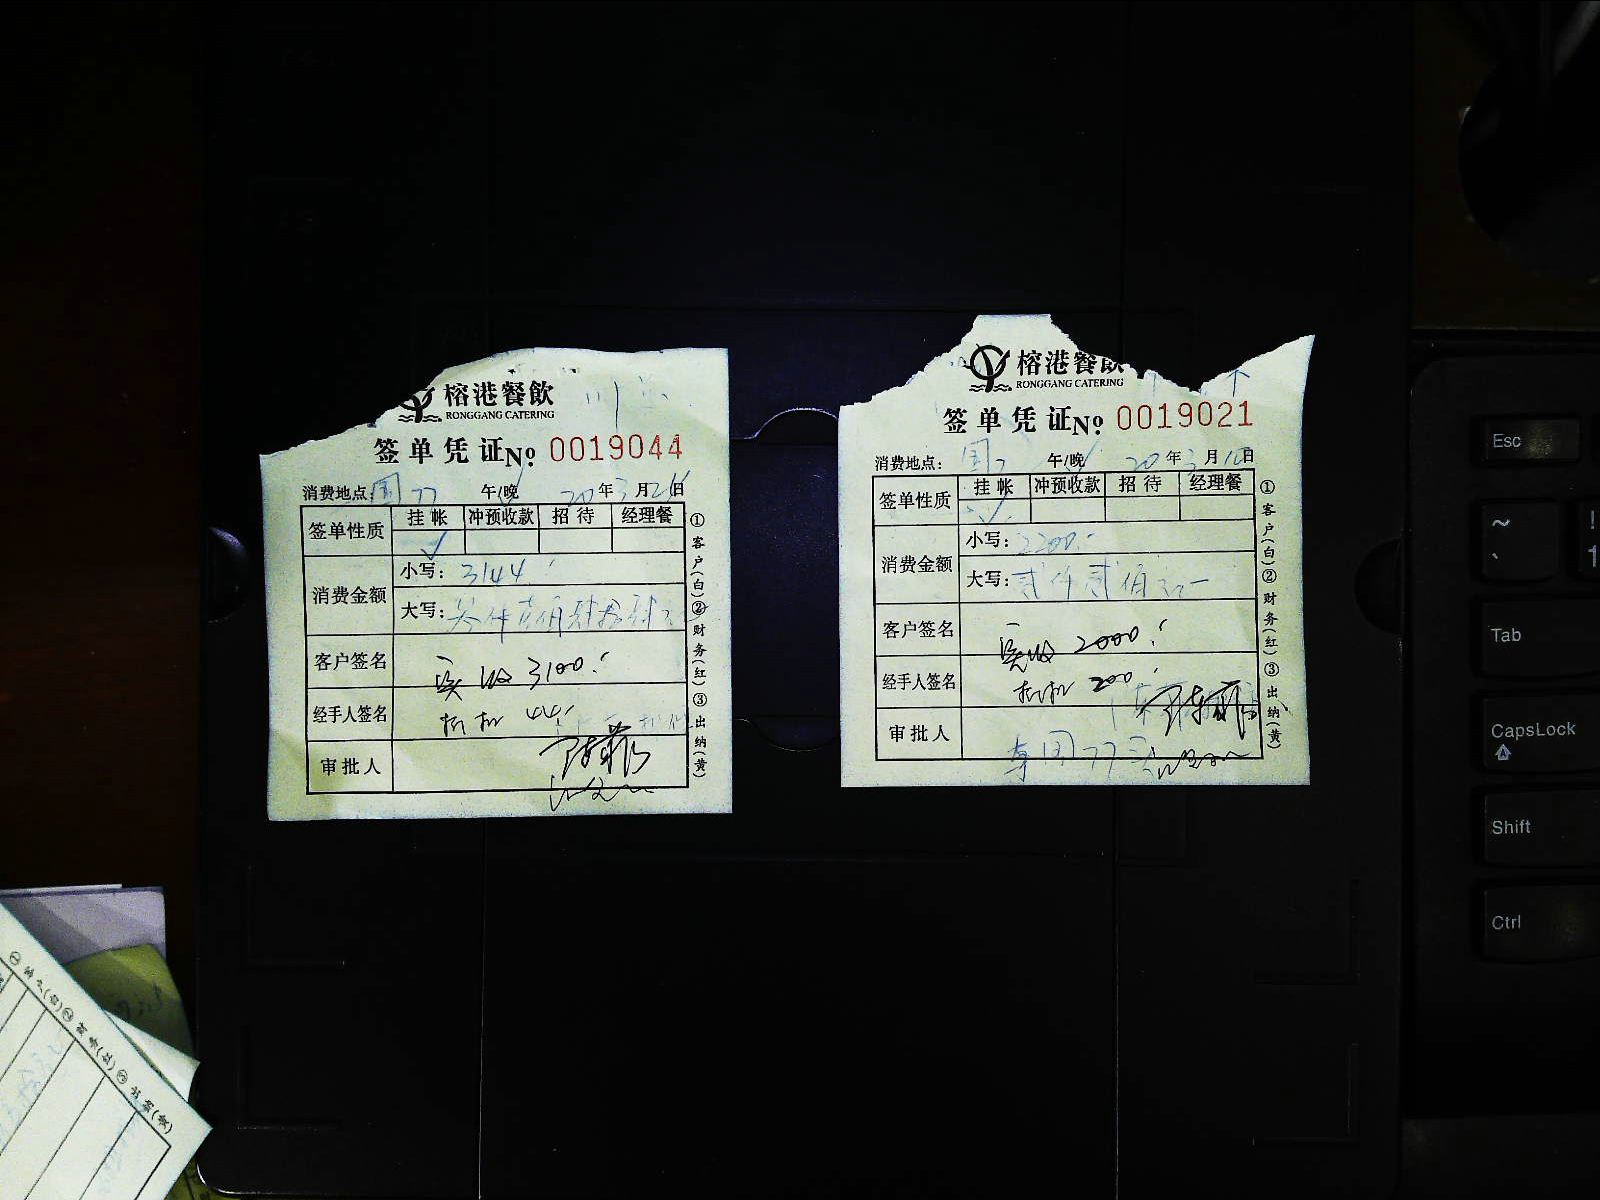 榕港餐飲
RONGGANG CATERING
签单凭证 No 0019044
消费地点: 国77 午/晚 20年3月26日
签单性质 挂帐 冲预收款 招待 经理餐
✓
消费金额 小写: 3144.
大写: 叁仟壹佰肆拾肆元
客户签名 实收 3100.
经手人签名 抹扣 44
审批人
①客户(白)②财务(红)③出纳(黄)
榕港餐飲
RONGGANG CATERING
签单凭证 No 0019021
消费地点: 国7 午/晚 20年3月10日
签单性质 挂帐 冲预收款 招待 经理餐
✓
消费金额 小写: 2200.
大写: 贰仟贰佰元
客户签名 实收 2000.
经手人签名 200
审批人
①客户(白)②财务(红)③出纳(黄)
Esc
~
`
!
1
Tab
CapsLock
Shift
Ctrl